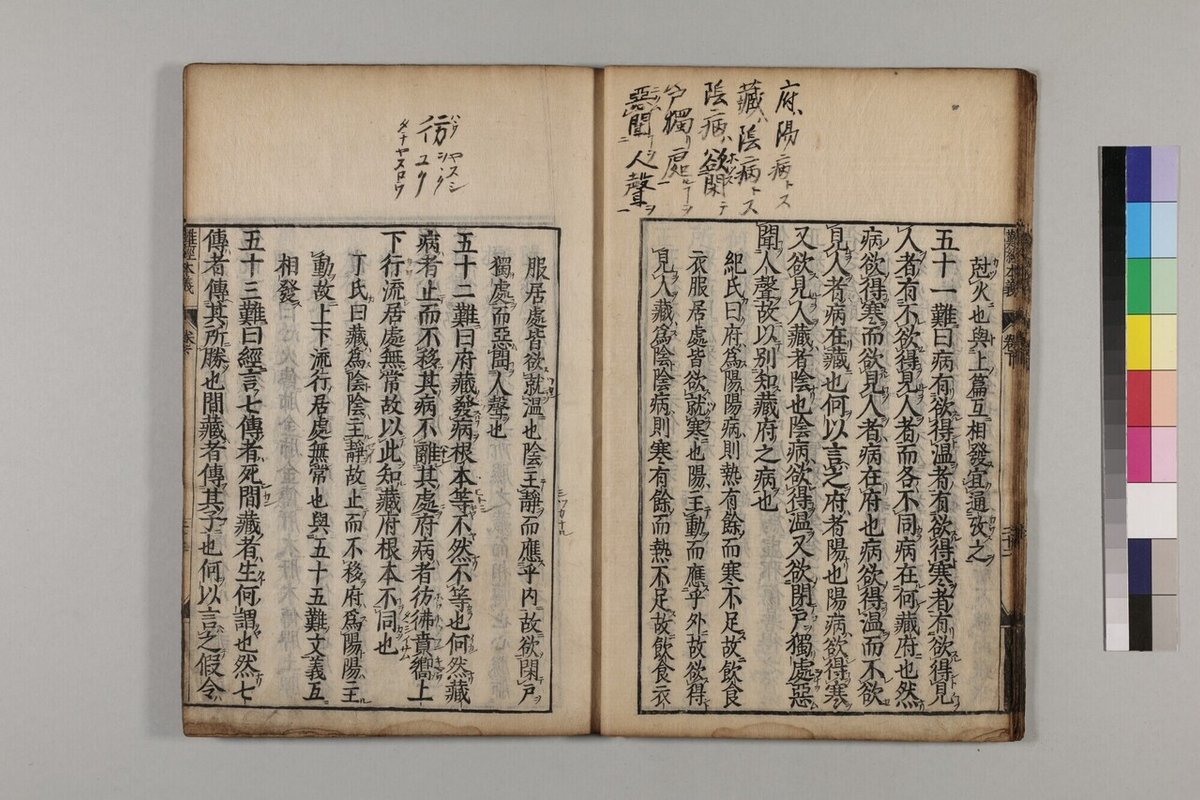 府ハ陽病トス
藏ハ陰病トス
陰病ハ欲閑テ
戸獨リ處ルヿヲ
惡聞ヿヲ人聲ヲ
尅火也與上篇互相發宜通攷之
五十一難曰病有欲得温者有欲得寒者有欲得見
人者有不欲得見人者而各不同病在何藏府也然
病欲得寒而欲見人者病在府也病欲得温而不欲
見人者病在藏也何以言之府者陽也陽病欲得寒
又欲見人藏者陰也陰病欲得温又欲閉戸獨處惡
聞人聲故以別知藏府之病也
紀氏曰府爲陽陽病則熱有餘而寒不足故飲食
衣服居處皆欲就寒也陽主動而應乎外故欲得
見人藏爲陰陰病則寒有餘而熱不足故飲食衣
難經本義
彷
服居處皆欲就温也陰主靜而應乎内故欲閑戸
獨處而惡聞人聲也
五十二難曰府藏發病根本等不然不等也何然藏
病者止而不移其病不離其處府病者彷彿賁嚮上
下行流居處無常故以此知藏府根本不同也
丁氏曰藏爲陰陰主靜故止而不移府爲陽陽主
動故上下流行居處無常也與五十五難文義互
相發
五十三難曰經言七傳者死間藏者生何謂也然七
傳者傳其所勝也間藏者傳其子也何以言之假令
難經本義